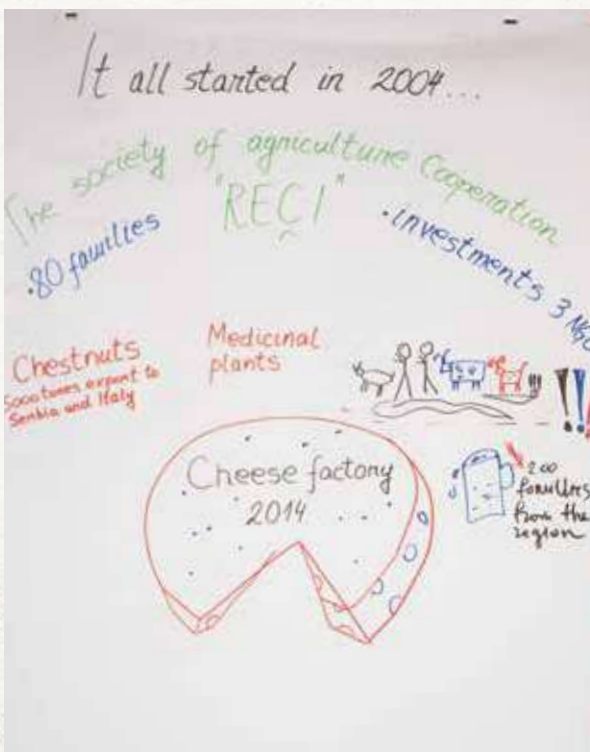 It all started in 2004...
The society of agriculture Cooperation
"REÇI"
.80 families
.investments 3
Chestnuts
export to
Serbia and Italy
Medicinal
plants
!!!
Cheese factory
2014
200
families
from the
region